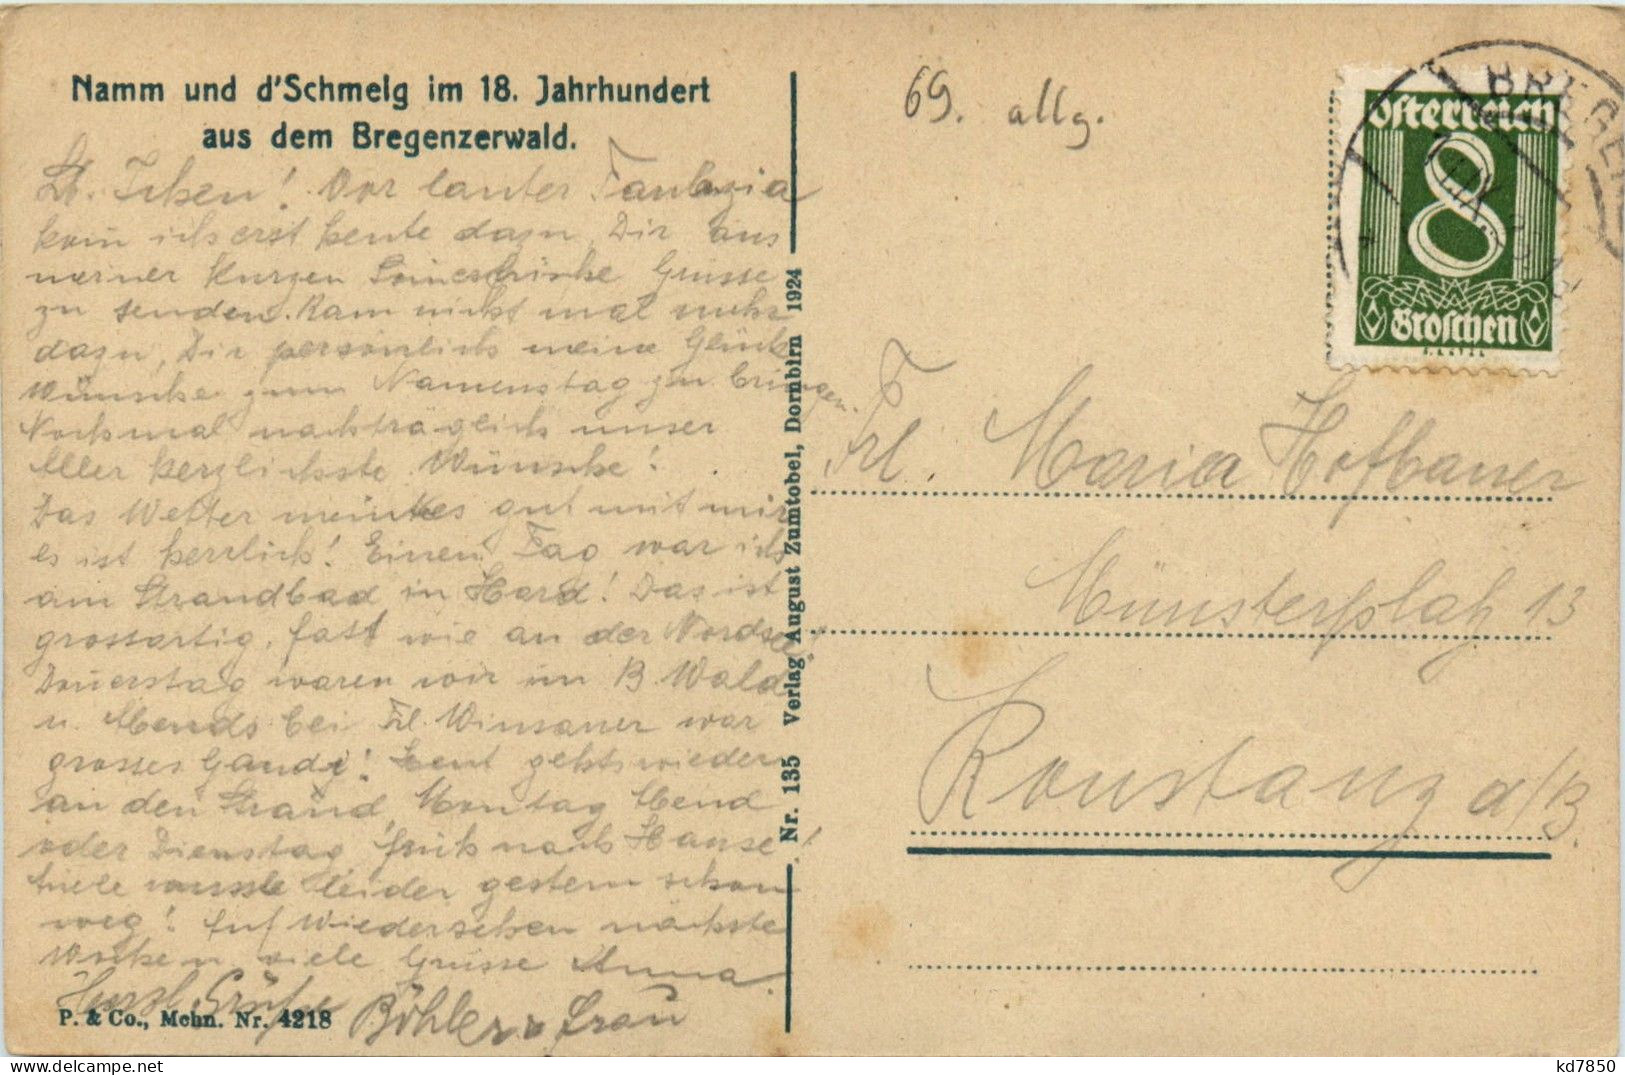 Namm und d'Schmelg im 18. Jahrhundert
aus dem Bregenzerwald.
Vor lauter
kom ich erst heute dazu, Dir aus
meiner kurzen Grüsse
zu senden. Kam nicht mal mehr
dazu, Dir persönlich meine Glück
wünsche zum Namenstag zu bringen.
Nochmal nachträglich unser
Aller herzlichste Wünsche!
Das Wetter meint es gut mit mir
es ist herrlich! Einen Tag war ich
am Strandbad in Hard! Das ist
grossartig, fast wie an der Nordsee!
Donerstag waren wir im B. Wald
u. Abends bei Frl. Winsauer war
grosse Gaudi! Heut gehts wieder
an den Strand, Montag Abend
oder Dienstag früh nach Hause!
Viele musste leider gestern schon
weg! Auf Wiedersehen nächste
Wochen, viele Grüsse Anna.
Herzl. Grüße Böhler u Frau
P. & Co., Mchn. Nr. 4218
Nr. 135 Verlag August Zumtobel, Dornbirn 1924
69. allg.
Österreich
8
Groschen
BREGEN
Frl. Maria Hofbauer
Münsterplatz 13
Konstanz a/B.
kd7850